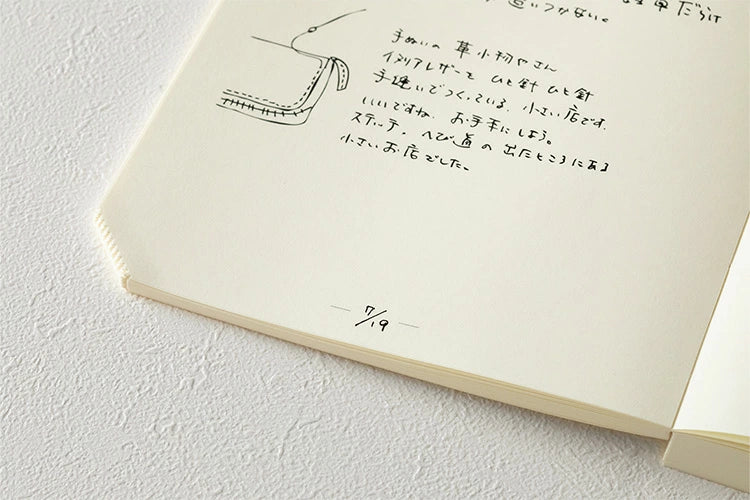 道いつかない。
手ぬいの 革小物やさん
イタリアレザーを ひと針 ひと針
手縫いでつくっている、小さい店です。
いいですね。お手本にしよう。
ステッチ。へび道の 出たところにある
小さいお店でした。
7/19